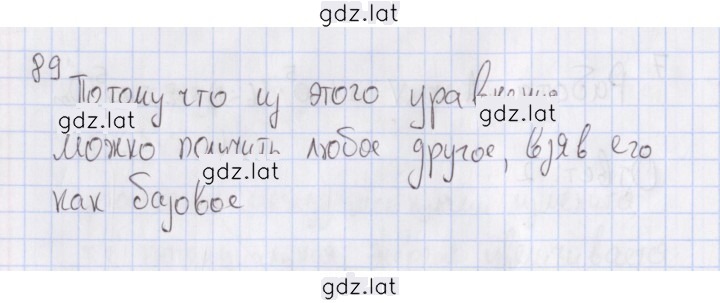 gdz.lat
89
Потому что из этого уравнения
gdz.lat gdz.lat
можно получить любое другое, взяв его
gdz.lat
как базовое
gdz.lat